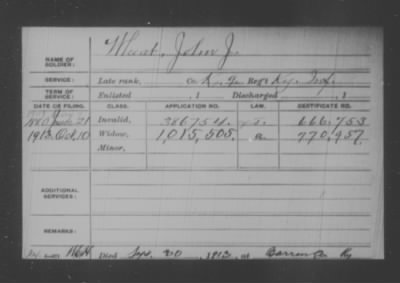 NAME OF SOLDIER: Wheat, John J.
SERVICE: Late rank, Co. K, Reg't Ky. Inf.
TERM OF SERVICE: Enlisted , 1 Discharged , 1
DATE OF FILING. CLASS. APPLICATION NO. LAW. CERTIFICATE NO.
1880 21 Invalid, 386754. 666,753
1913 Oct, 10 Widow, 1,015,505. 770,957
Minor,
ADDITIONAL SERVICES:
REMARKS:
Died Sept. 20, 1913, at Barren Co Ky